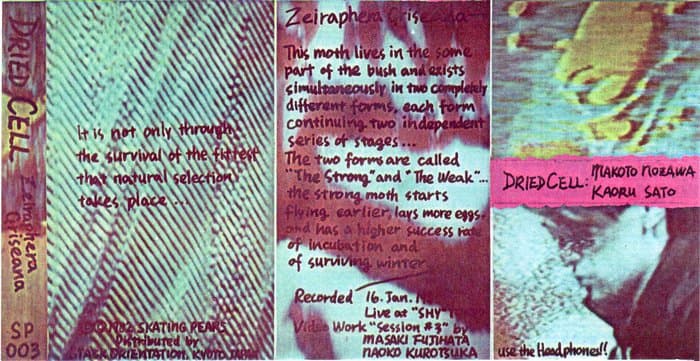 DRIED CELL
Zeiraphera
Griseana
SP
003
It is not only through
the survival of the fittest
that natural selection
takes place ...
1982 SKATING PEARS
Distributed by
STACK ORIENTATION, KYOTO JAPAN
Zeiraphera Griseana
This moth lives in the same
part of the bush and exists
simultaneously in two completely
different forms, each form
continuing two independent
series of stages ...
The two forms are called
"The Strong" and "The Weak"...
the strong moth starts
flying earlier, lays more eggs,
and has a higher success rate
of incubation and
of surviving winter
Recorded 16. Jan.
Live at "SHY"
Video Work "Session #3" by
MASAKI FUJIHATA
NAOKO KUROTSUKA
DRIED CELL: MAKOTO NOZAWA
KAORU SATO
use the Headphones!!